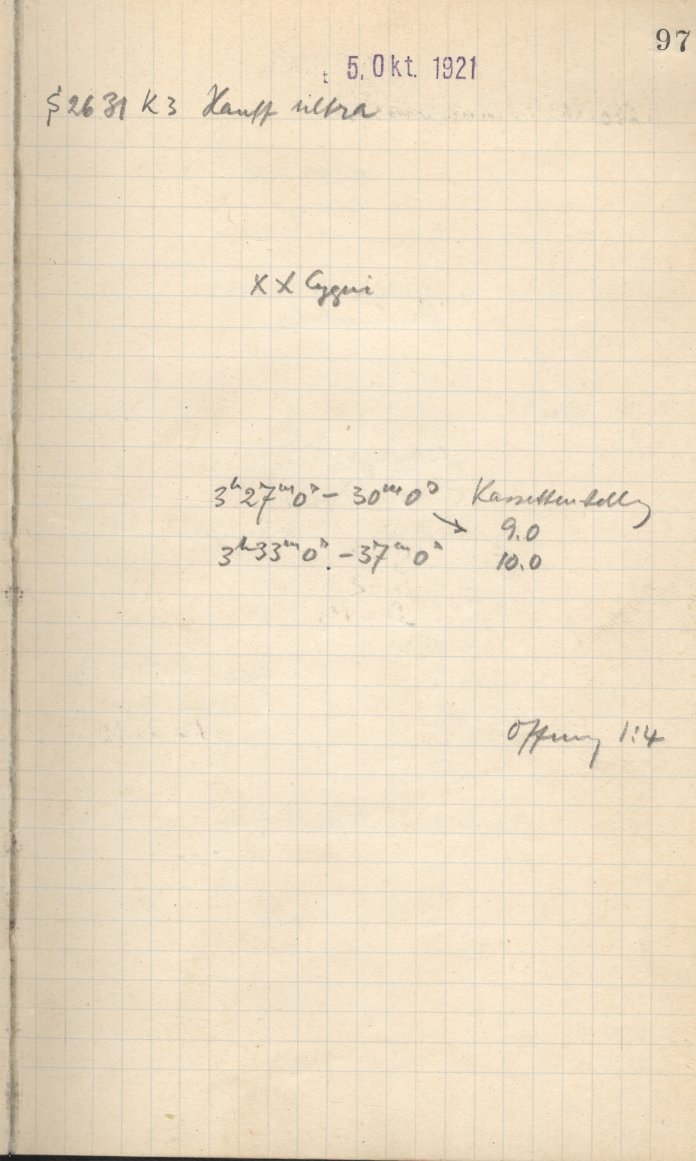 97
5. Okt. 1921
§ 2631 K3 Hauff ultra
XX Cygni
3ʰ27ᵐ0ˢ – 30ᵐ0ˢ Kassettenstellg
↘ 9.0
3ʰ33ᵐ0ˢ – 37ᵐ0ˢ 10.0
Öffnung 1:4